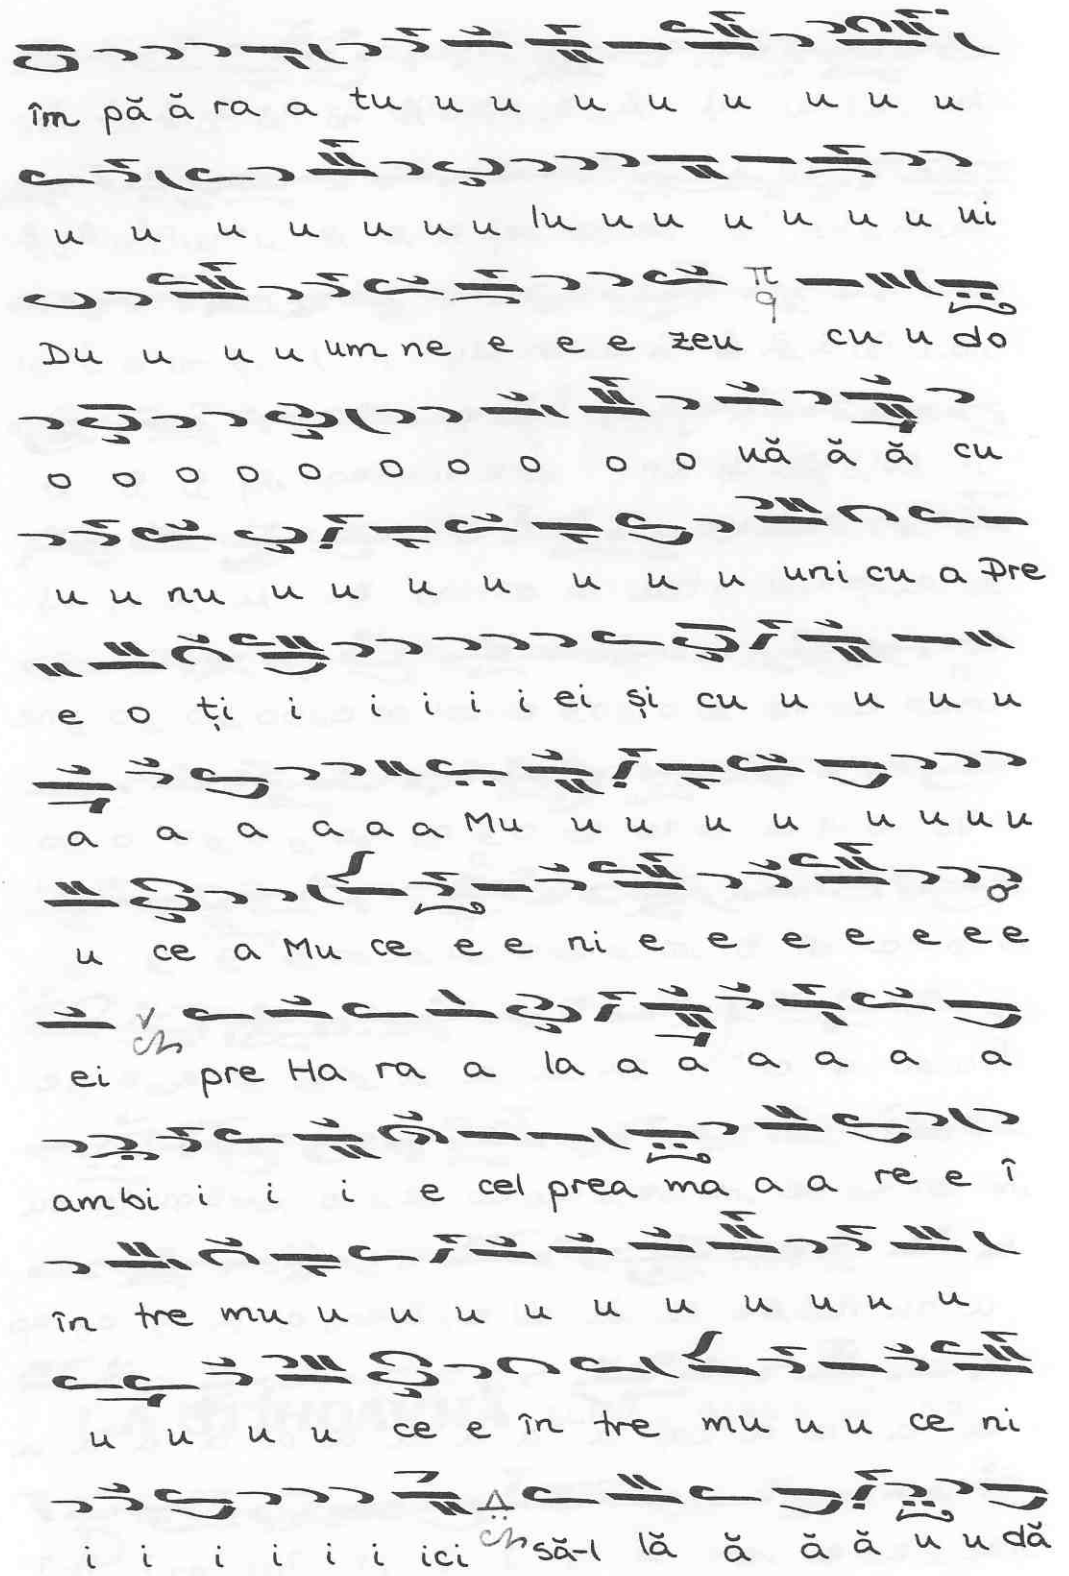 îm pă ă ra a tu u u u u u u u u
u u u u u u u lu u u u u u u ui
Du u u u um ne e e e zeu cu u do
o o o o o o o o o o uă ă ă cu
u u nu u u u u u u u uni cu a Pre
e o ți i i i i i ei și cu u u u u
a a a a a a Mu u u u u u u u u
u ce a Mu ce e e ni e e e e e e e
ei pre Ha ra a la a a a a a a
ambi i i i e cel prea ma a a re e î
în tre mu u u u u u u u u u u
u u u u ce e în tre mu u u ce ni
i i i i i i ici să-l lă ă ă ă u u dă